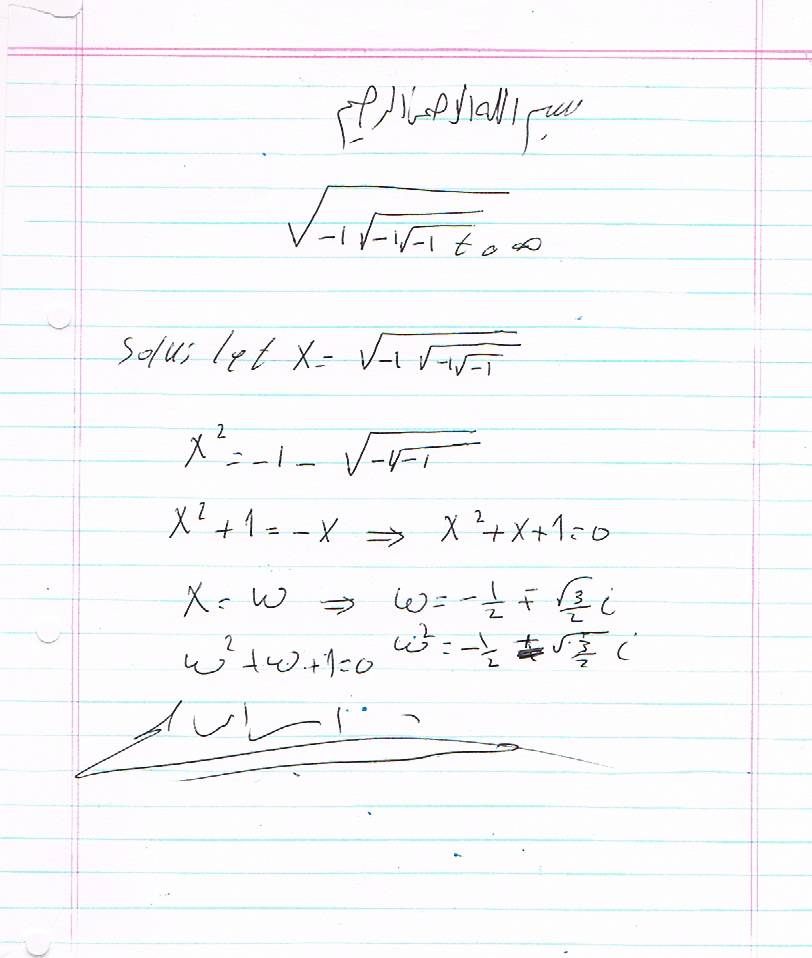 بسم الله الرحمن الرحيم
√(-1√(-1√-1 to ∞
Solu; let X = √(-1√(-1√-1
X² = -1 - √(-1√-1
X² + 1 = -X ⇒ X² + X + 1 = 0
X = ω ⇒ ω = -1/2 ∓ √3/2 i
ω² + ω + 1 = 0 ω² = -1/2 ± √3/2 i